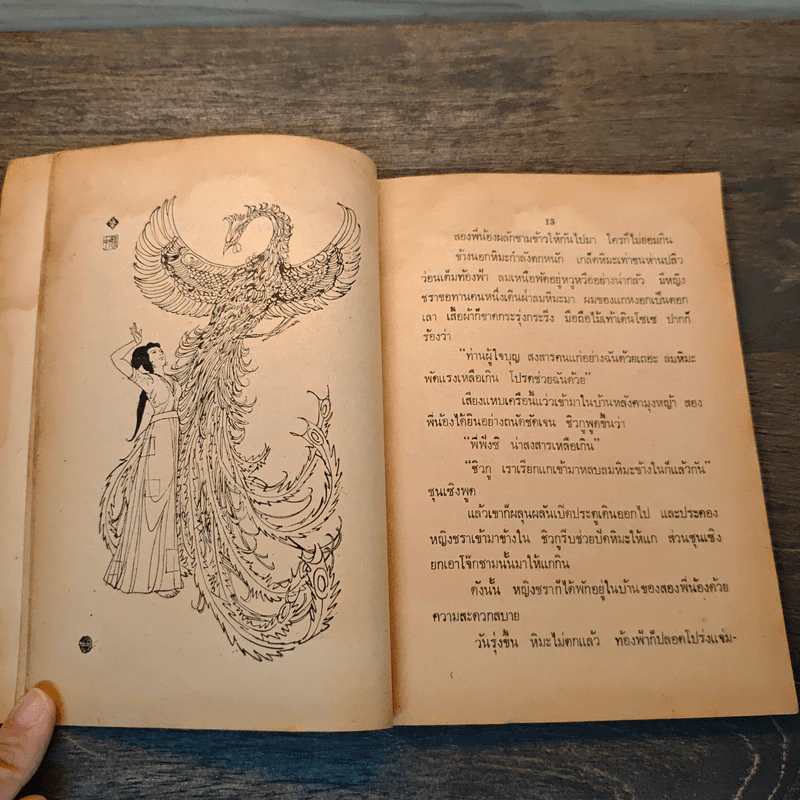 13
สองพี่น้องผลักชามข้าวให้กันไปมา ใครก็ไม่ยอมกิน
ข้างนอกหิมะกำลังตกหนัก เกล็ดหิมะเท่าขนห่านปลิว
ว่อนเต็มท้องฟ้า ลมเหนือพัดอยู่หวูหวืออย่างน่ากลัว มีหญิง
ชราขอทานคนหนึ่งเดินฝ่าลมหิมะมา ผมของแกหงอกเป็นดอก
เลา เสื้อผ้าก็ขาดกระรุ่งกระริ่ง มือถือไม้เท้าเดินโซเซ ปากก็
ร้องว่า
“ท่านผู้ใจบุญ สงสารคนแก่อย่างฉันด้วยเถอะ ลมหิมะ
พัดแรงเหลือเกิน โปรดช่วยฉันด้วย”
เสียงแหบเครือนี้แว่วเข้ามาในบ้านหลังคามุงหญ้า สอง
พี่น้องได้ยินอย่างถนัดชัดเจน ชิวกูพูดขึ้นว่า
“พี่ฟังซิ น่าสงสารเหลือเกิน”
“ชิวกู เราเรียกแกเข้ามาหลบลมหิมะข้างในก็แล้วกัน”
ชุนเซิงพูด
แล้วเขาก็ผลุนผลันเปิดประตูเดินออกไป และประคอง
หญิงชราเข้ามาข้างใน ชิวกูรีบช่วยปัดหิมะให้แก ส่วนชุนเซิง
ยกเอาโจ๊กชามนั้นมาให้แกกิน
ดังนั้น หญิงชราก็ได้พักอยู่ในบ้านของสองพี่น้องด้วย
ความสะดวกสบาย
วันรุ่งขึ้น หิมะไม่ตกแล้ว ท้องฟ้าก็ปลอดโปร่งแจ่ม-